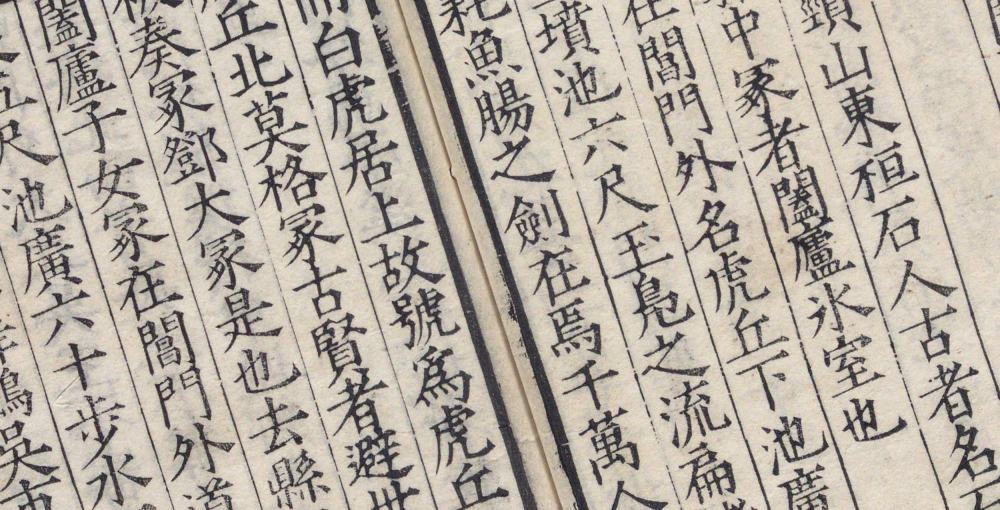 頸山東桓石人古者名石
中冢者闔廬氷室也
在閶門外名虎丘下池廣
墳池六尺玉鳬之流扁
耗魚腸之劍在焉千萬人
而白虎居上故號爲虎丘
丘北莫格冢古賢者避世
奏冢鄧大冢是也去縣
闔廬子女冢在閶門外道
五尺池廣六十步水
鶴吳市